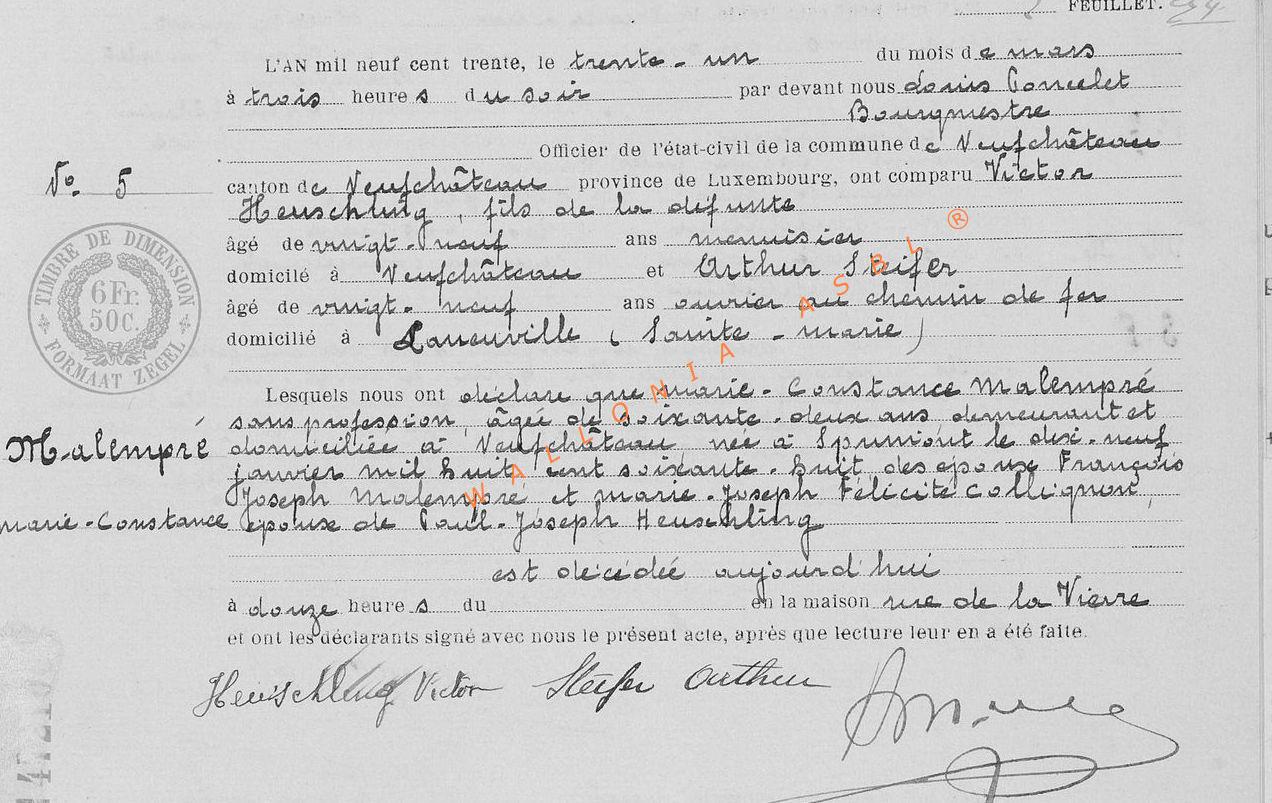 FEUILLET.
L'AN mil neuf cent trente, le trente-un du mois de mars
à trois heures du soir par devant nous Louis Poncelet
Bourgmestre
Officier de l'état-civil de la commune de Neufchâteau
N° 5
canton de Neufchâteau province de Luxembourg, ont comparu Victor
Heuschling, fils de la défunte
âgé de vingt-neuf ans menuisier
domicilié à Neufchâteau et Arthur Steifer
âgé de vingt-neuf ans ouvrier au chemin de fer
domicilié à Laneuville (Sainte-Marie)
Lesquels nous ont déclaré que Marie-Constance Malempré
sans profession, âgée de soixante-deux ans demeurant et
Malempré
domiciliée à Neufchâteau, née à Sprimont le dix-neuf
janvier mil huit cent soixante-huit des époux François
Joseph Malempré et Marie-Joseph Félicité Collignon,
Marie-Constance
épouse de Paul-Joseph Heuschling
est décédée aujourd'hui
à douze heures du en la maison rue de la Vierre
et ont les déclarants signé avec nous le présent acte, après que lecture leur en a été faite.
Heuschling Victor Steifer Arthur
TIMBRE DE DIMENSION
6 Fr.
50C.
FORMAAT ZEGEL
WALLONIA ASBL ®